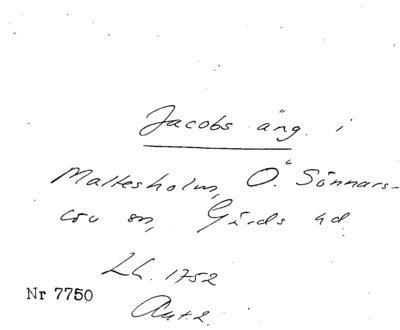 Jacobs äng i
Maltesholm, Ö. Sönnars-
löv sn, Gärds hd
Lh. 1752
Nr 7750